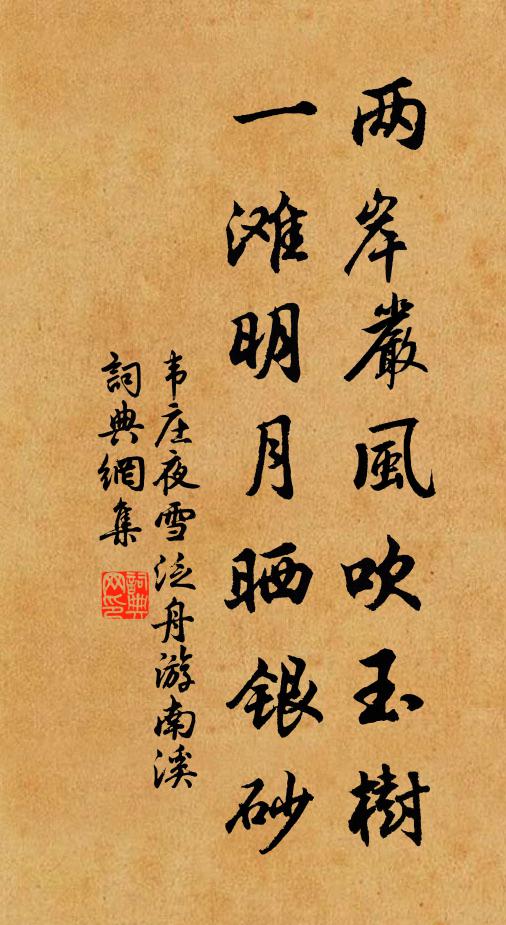 两岸嚴風吹玉樹
一滩明月晒银砂
韦庄夜雪泛舟游南溪
詞典網集
詞典网印